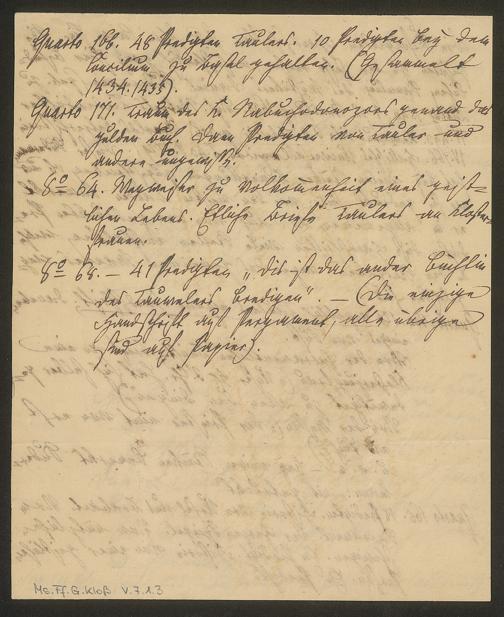 Quarto 166. 48 Predigten Taulers. 10 Predigten bey dem
Concilium zu Basel gehalten. (Gesammelt
1434.1435).
Quarto 171. Traum des K. Nabuchodonozors genand das
gulden Buch. Dann Predigten von Tauler und
andere
8º 64. Wegweiser zu Volkomenheit eines geist-
lichen Lebens. Etliche Briefe Taulers an Kloster-
frauen.
8º 68. — 41 Predigten „Dis ist das ander Büchlin
des Tauwelers Bredigen". — (Die einzige
Handschrift auf Pergament, alle übrige
sind auf Papier)
Ms. Ff. G. Kloß V. 7.1.3